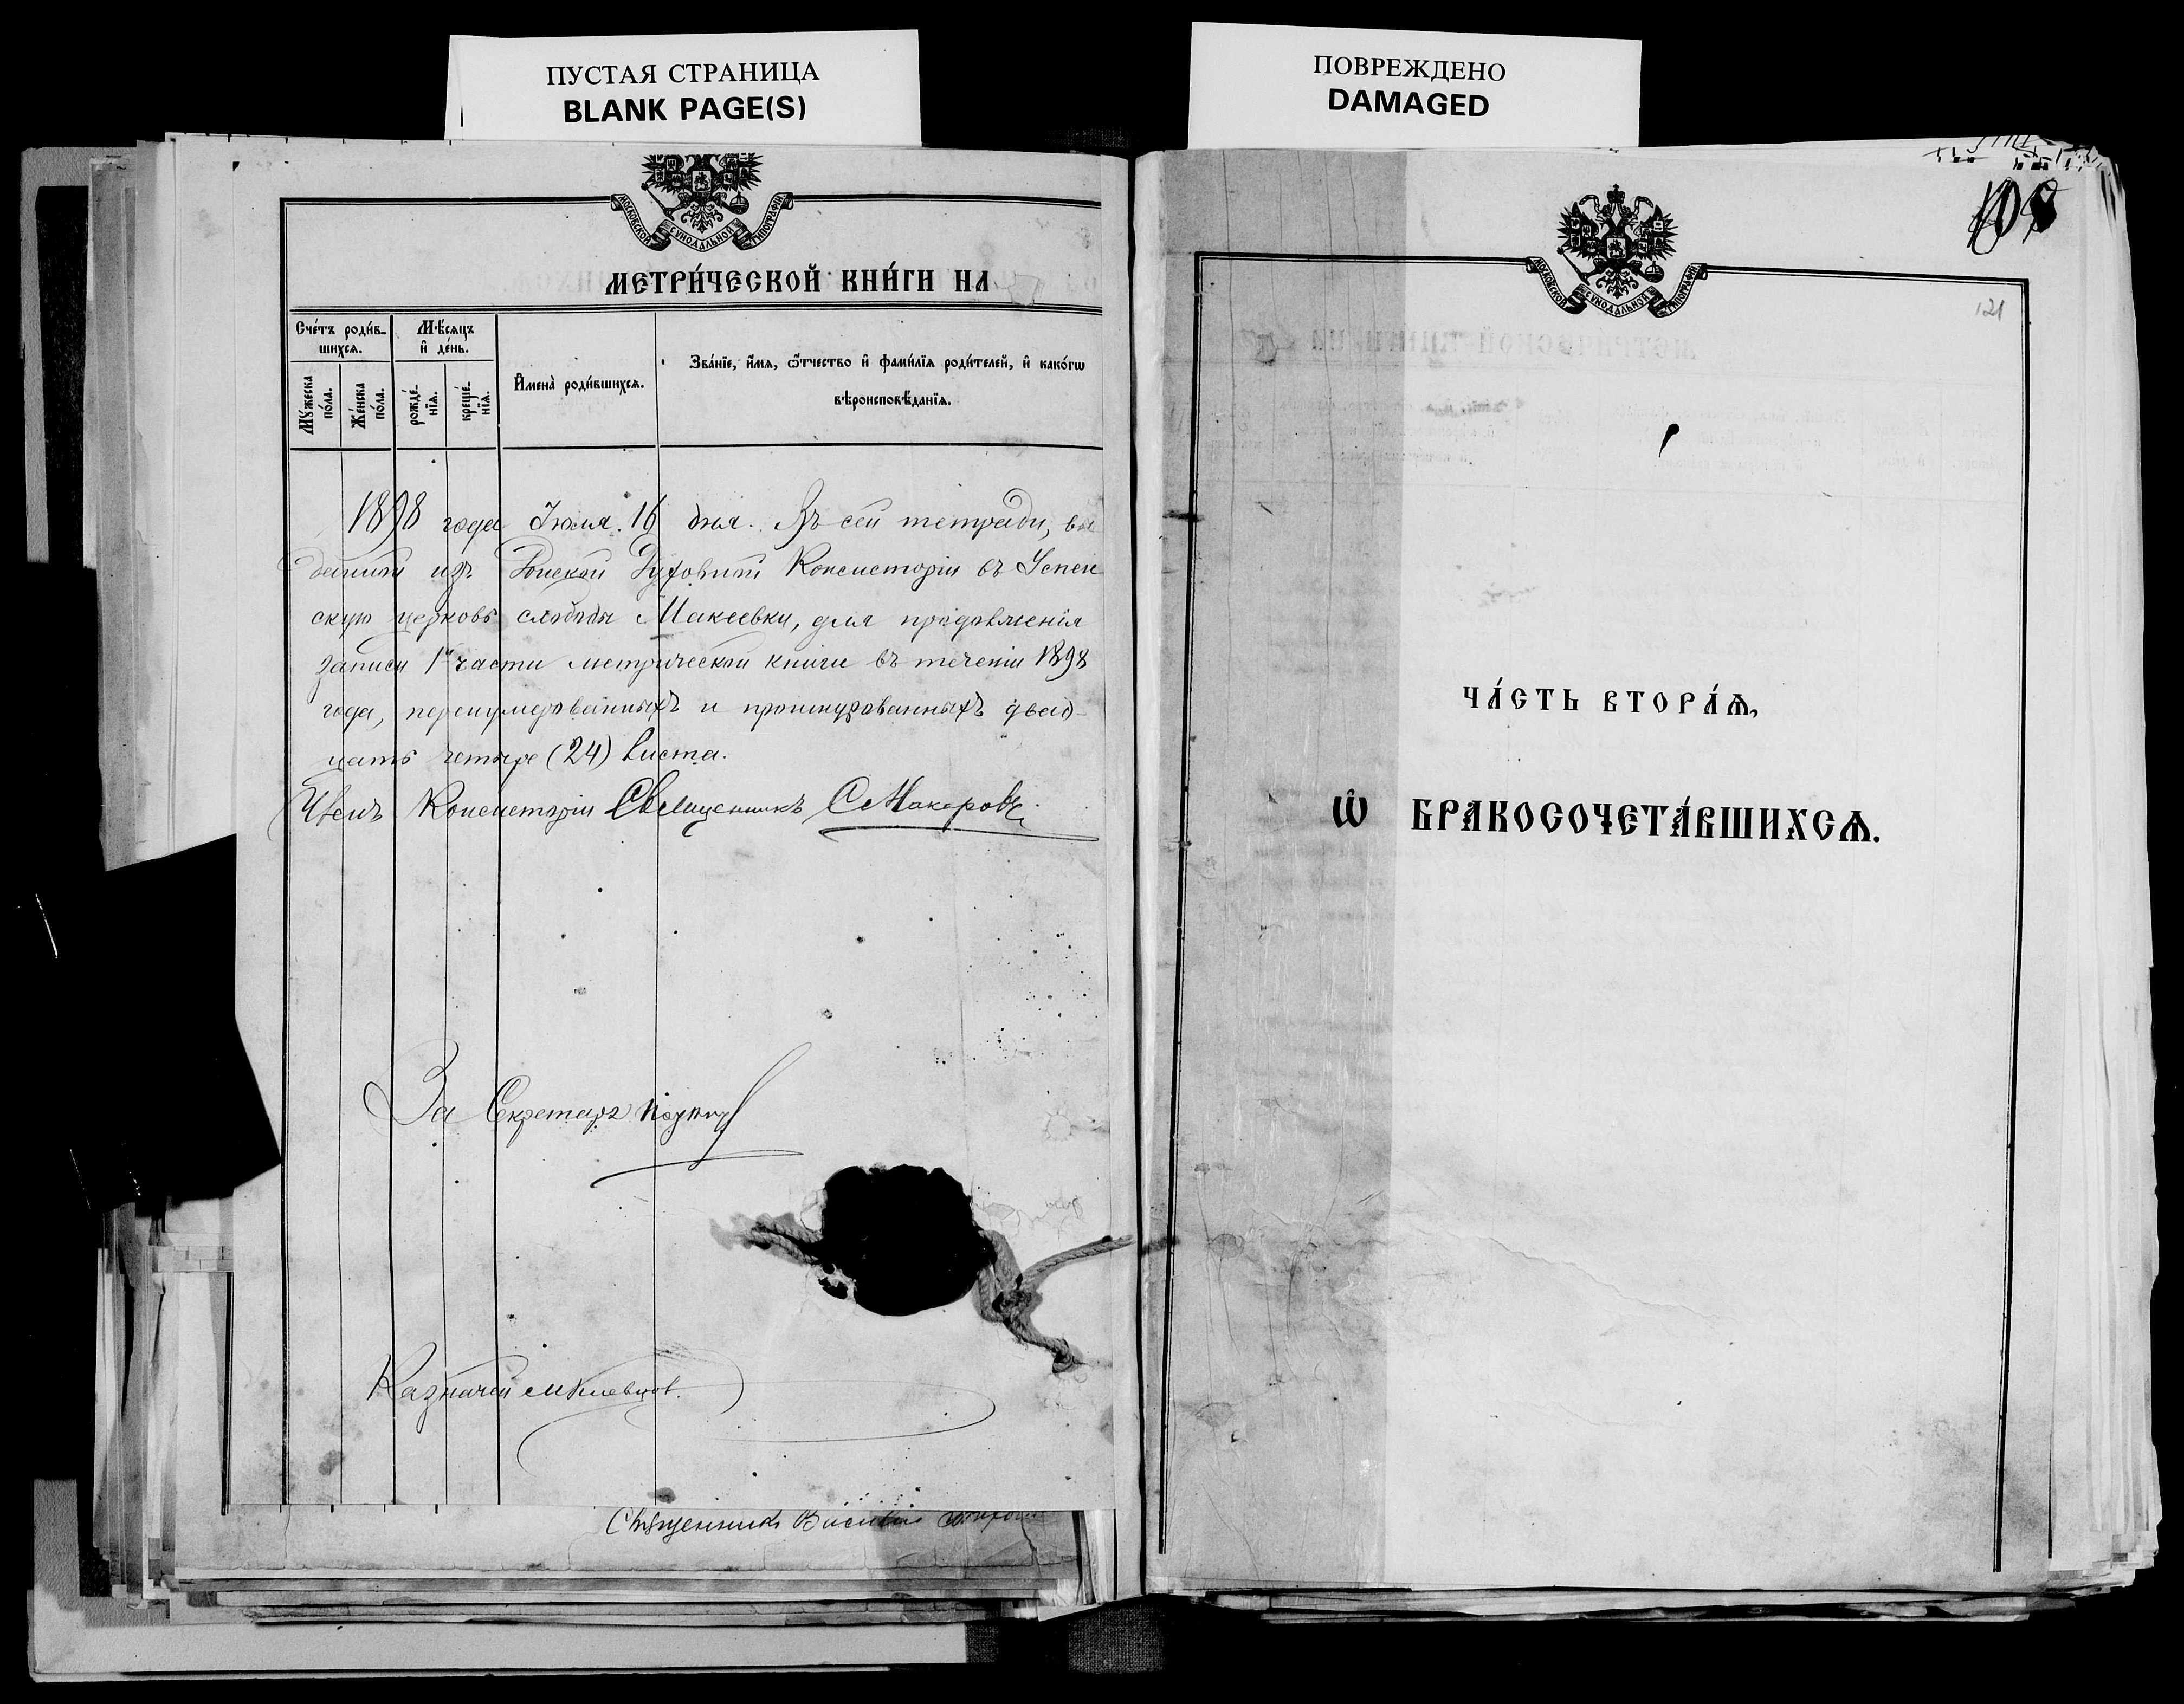 ПУСТАЯ СТРАНИЦА
BLANK PAGE(S)
ПОВРЕЖДЕНО
DAMAGED
МОСКОВСКОЙ СѴНОДАЛЬНОЙ ТИПОГРАФІИ
МЕТРИ́ЧЕСКОЙ КНИ́ГИ НА
Сче́тъ роди́в-
шихсѧ.
Мѣ́сѧцъ
и҆ де́нь.
Мꙋ́жеска
по́ла.
Же́нска
по́ла.
рожде́-
нїѧ.
креще́-
нїѧ.
И҆мена̀ роди́вшихсѧ.
Зва́нїе, и҆́мѧ, ѻ҆́тчество и҆ фами́лїѧ роди́телей, и҆ како́гѡ
вѣроисповѣ́данїѧ.
1898 года Іюля 16 дня. Въ сей тетради, вы
данной изъ Донской Духовной Консисторіи въ Успен
скую церковь слободы Макеевки, для продолженія
записи 1й части метрической книги въ теченіи 1898
года, перенумерованныхъ и прошнурованныхъ двад-
цать четыре (24) листа.
Членъ Консисторіи Священникъ С Макаровъ
За Секретаря
Казначей
Священникъ
МОСКОВСКОЙ СѴНОДАЛЬНОЙ ТИПОГРАФІИ
121
ЧА́СТЬ ВТОРА́Ѧ,
Ѡ҆ БРАКОСОЧЕТА́ВШИХСѦ.